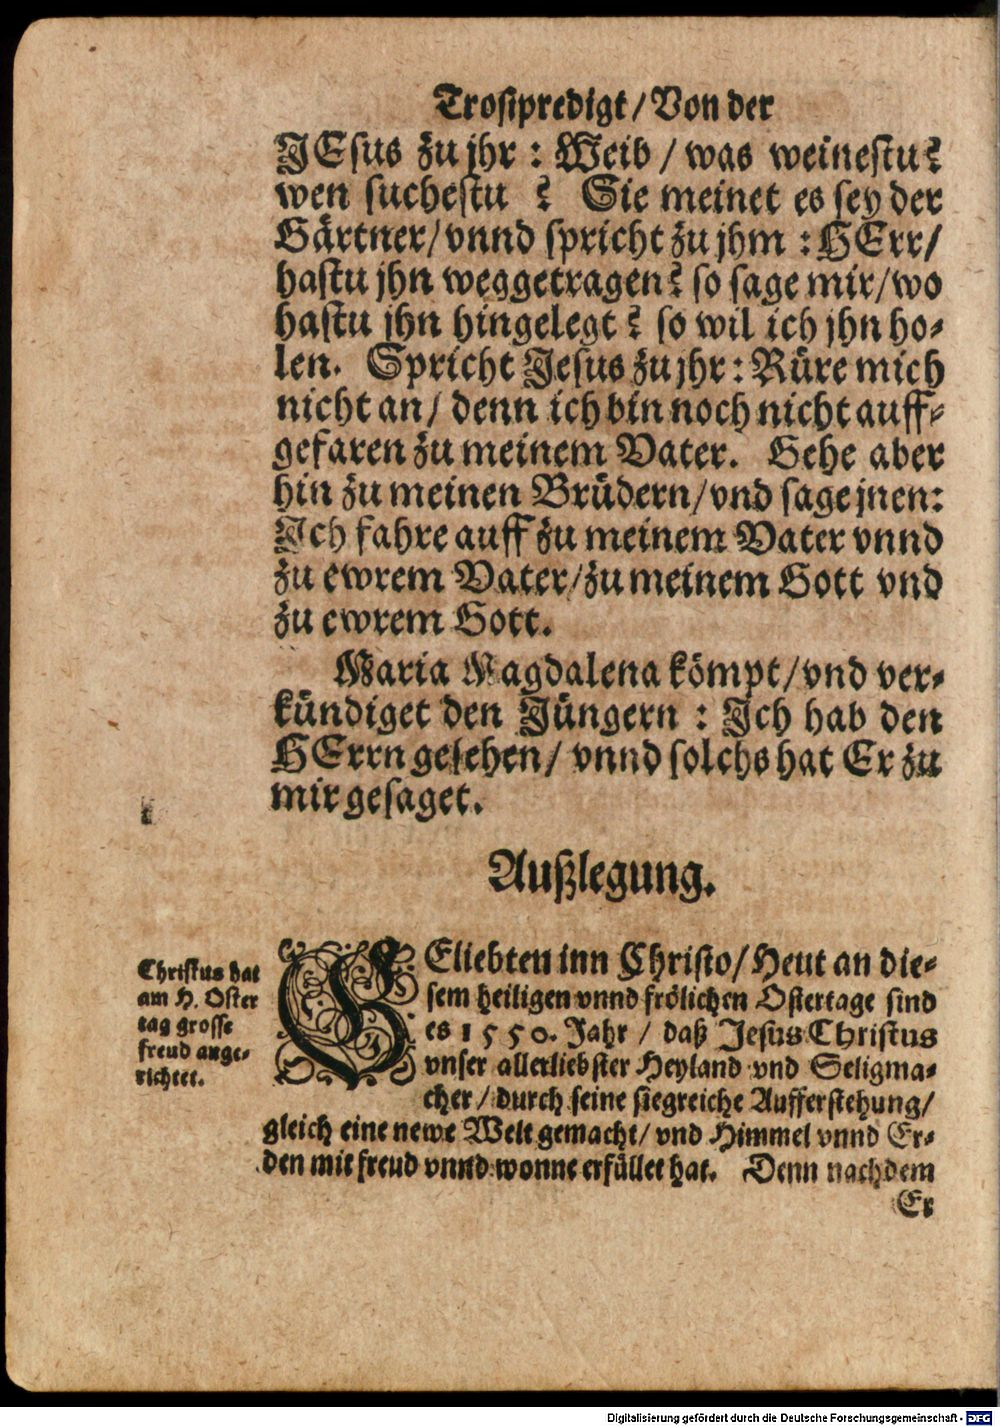 Trostpredigt/ Von der
JEsus zu jhr: Weib/ was weinestu?
wen suchestu? Sie meinet es sey der
Gärtner/ vnnd spricht zu jhm: HErr/
hastu jhn weggetragen? so sage mir/ wo
hastu jhn hingelegt? so wil ich jhn ho-
len. Spricht Jesus zu jhr: Rüre mich
nicht an/ denn ich bin noch nicht auff-
gefaren zu meinem Vater. Gehe aber
hin zu meinen Brüdern/ vnd sage jnen:
Ich fahre auff zu meinem Vater vnnd
zu ewrem Vater/ zu meinem Gott vnd
zu ewrem Gott.
Maria Magdalena kömpt/ vnd ver-
kündiget den Jüngern: Ich hab den
HErrn gesehen/ vnnd solchs hat Er zu
mir gesaget.
Außlegung.
Christus hat
am H. Oster
tag grosse
freud ange-
richtet.
GEliebten inn Christo/ Heut an die-
sem heiligen vnnd frölichen Ostertage sind
es 1550. Jahr/ daß Jesus Christus
vnser allerliebster Heyland vnd Seligma-
cher/ durch seine siegreiche Aufferstehung/
gleich eine newe Welt gemacht/ vnd Himmel vnnd Er-
den mit freud vnnd wonne erfüllet hat. Denn nachdem
Er
Digitalisierung gefördert durch die Deutsche Forschungsgemeinschaft - DFG